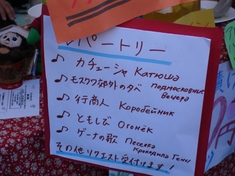 レパートリー
♪ カチューシャ Катюша
♪ モスクワ郊外の夕べ Подмосковные Вечера
♪ 行商人 Коробейник
♪ ともしび Огонёк
♪ ゲーナの歌 Песенка Крокодила Гены
その他リクエスト受付けます!